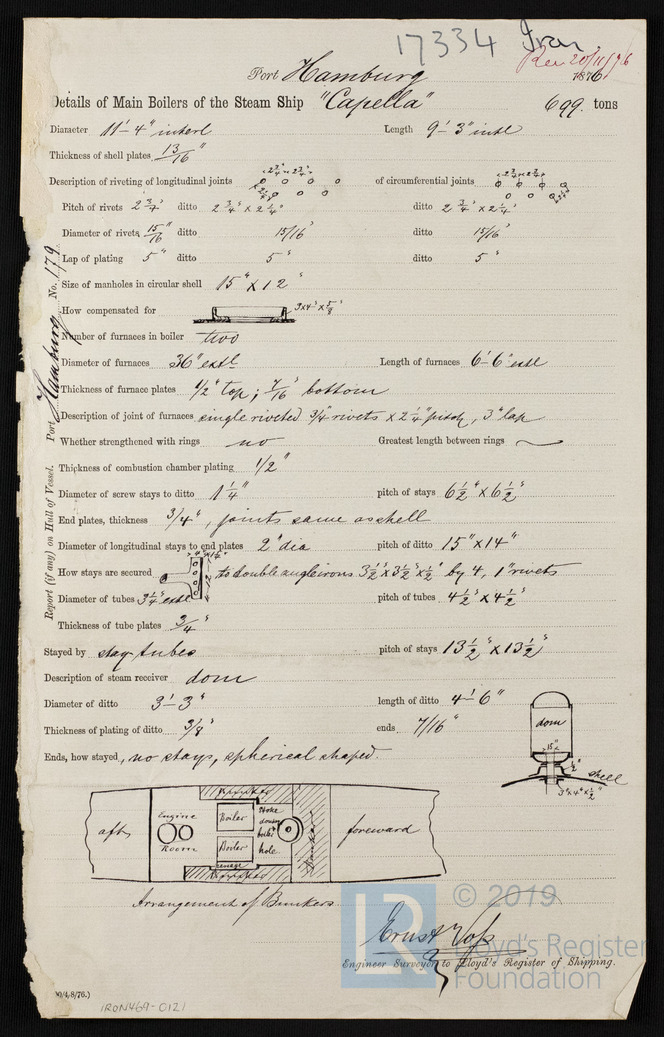 17334 Iron
Rec 20/11/76
Port Hamburg 1876
Details of Main Boilers of the Steam Ship "Capella" 699 tons
Diameter 11'-4" interl Length 9'-3" intl
Thickness of shell plates 13/16"
Description of riveting of longitudinal joints of circumferential joints
Pitch of rivets 2 3/4" ditto 2 3/4" x 2 1/4" ditto 2 3/4" x 2 1/4"
Diameter of rivets 15/16" ditto 15/16" ditto 15/16"
Lap of plating 5" ditto 5" ditto 5"
Size of manholes in circular shell 15" x 12"
How compensated for 3x4"x5/8"
Number of furnaces in boiler two
Diameter of furnaces 36" extl Length of furnaces 6'-6" extl
Thickness of furnace plates 1/2" top; 7/16" bottom
Description of joint of furnaces single riveted 3/4" rivets x 2 1/4" pitch, 3" lap
Whether strengthened with rings no Greatest length between rings
Thickness of combustion chamber plating 1/2"
Diameter of screw stays to ditto 1 1/4" pitch of stays 6 1/2" x 6 1/2"
End plates, thickness 3/4", joints same as shell
Diameter of longitudinal stays to end plates 2" dia pitch of ditto 15" x 14"
How stays are secured to double angleirons 3 1/2" x 3 1/2" x 1/2" by 4, 1" rivets
Diameter of tubes 3 1/4" extl pitch of tubes 4 1/2" x 4 1/2"
Thickness of tube plates 3/4"
Stayed by stay tubes pitch of stays 13 1/2" x 13 1/2"
Description of steam receiver dom
Diameter of ditto 3'-3" length of ditto 4'-6"
Thickness of plating of ditto 3/8" ends 7/16"
Ends, how stayed, no stays, spherical shaped.
dom
15"
shell
3"x4"x1/2"
aft
Engine
Room
Boiler
Boiler
Stoke
hole
foreward
Arrangement of Bunkers
Ernst Vofs
Engineer Surveyor to Lloyd's Register of Shipping.
Report (if any) on Hull of Vessel. Port Hamburg No. 179
IRON469-0121
LR
© 2019
Lloyd's Register
Foundation